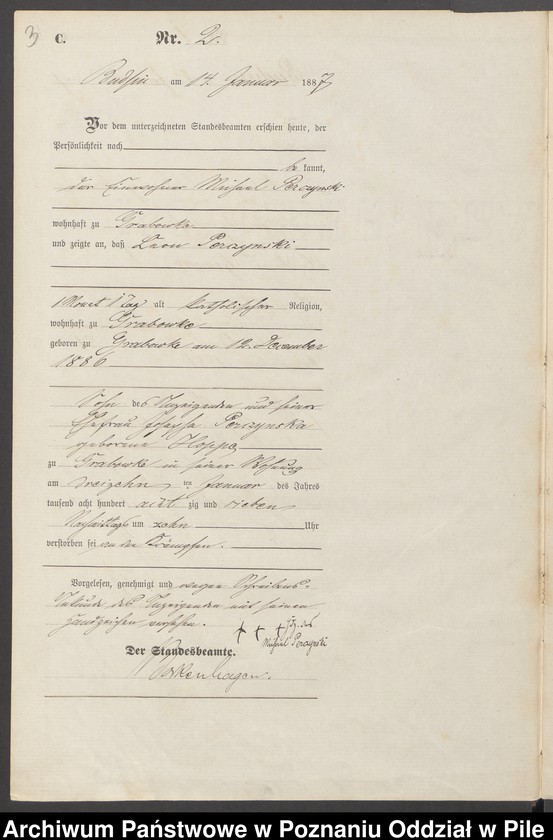 3
C.
Nr. 2.
Budsin am 14. Januar 1887
Vor dem unterzeichneten Standesbeamten erschien heute, der
Persönlichkeit nach
be kannt,
der Einwohner Michael Perczynski
wohnhaft zu Grabowke
und zeigte an, daß Leon Perczynski
1 Monat 1 Tag alt katholischer Religion,
wohnhaft zu Grabowke
geboren zu Grabowke am 12. December
1886
Sohn des Anzeigenden und seiner
Ehefrau Josepha Perczynska
geborene Hoppa
zu Grabowke in seiner Wohnung
am dreizehn ten Januar des Jahres
tausend acht hundert acht zig und sieben
Nachmittags um zehn Uhr
verstorben sei an den Krämpfen.
Vorgelesen, genehmigt und wegen Schreibens-
Unkunde des Anzeigenden mit seinen
Handzeichen versehen.
† † † Hdz. des
Michael Perczynski
Der Standesbeamte.
Archiwum Państwowe w Poznaniu Oddział w Pile